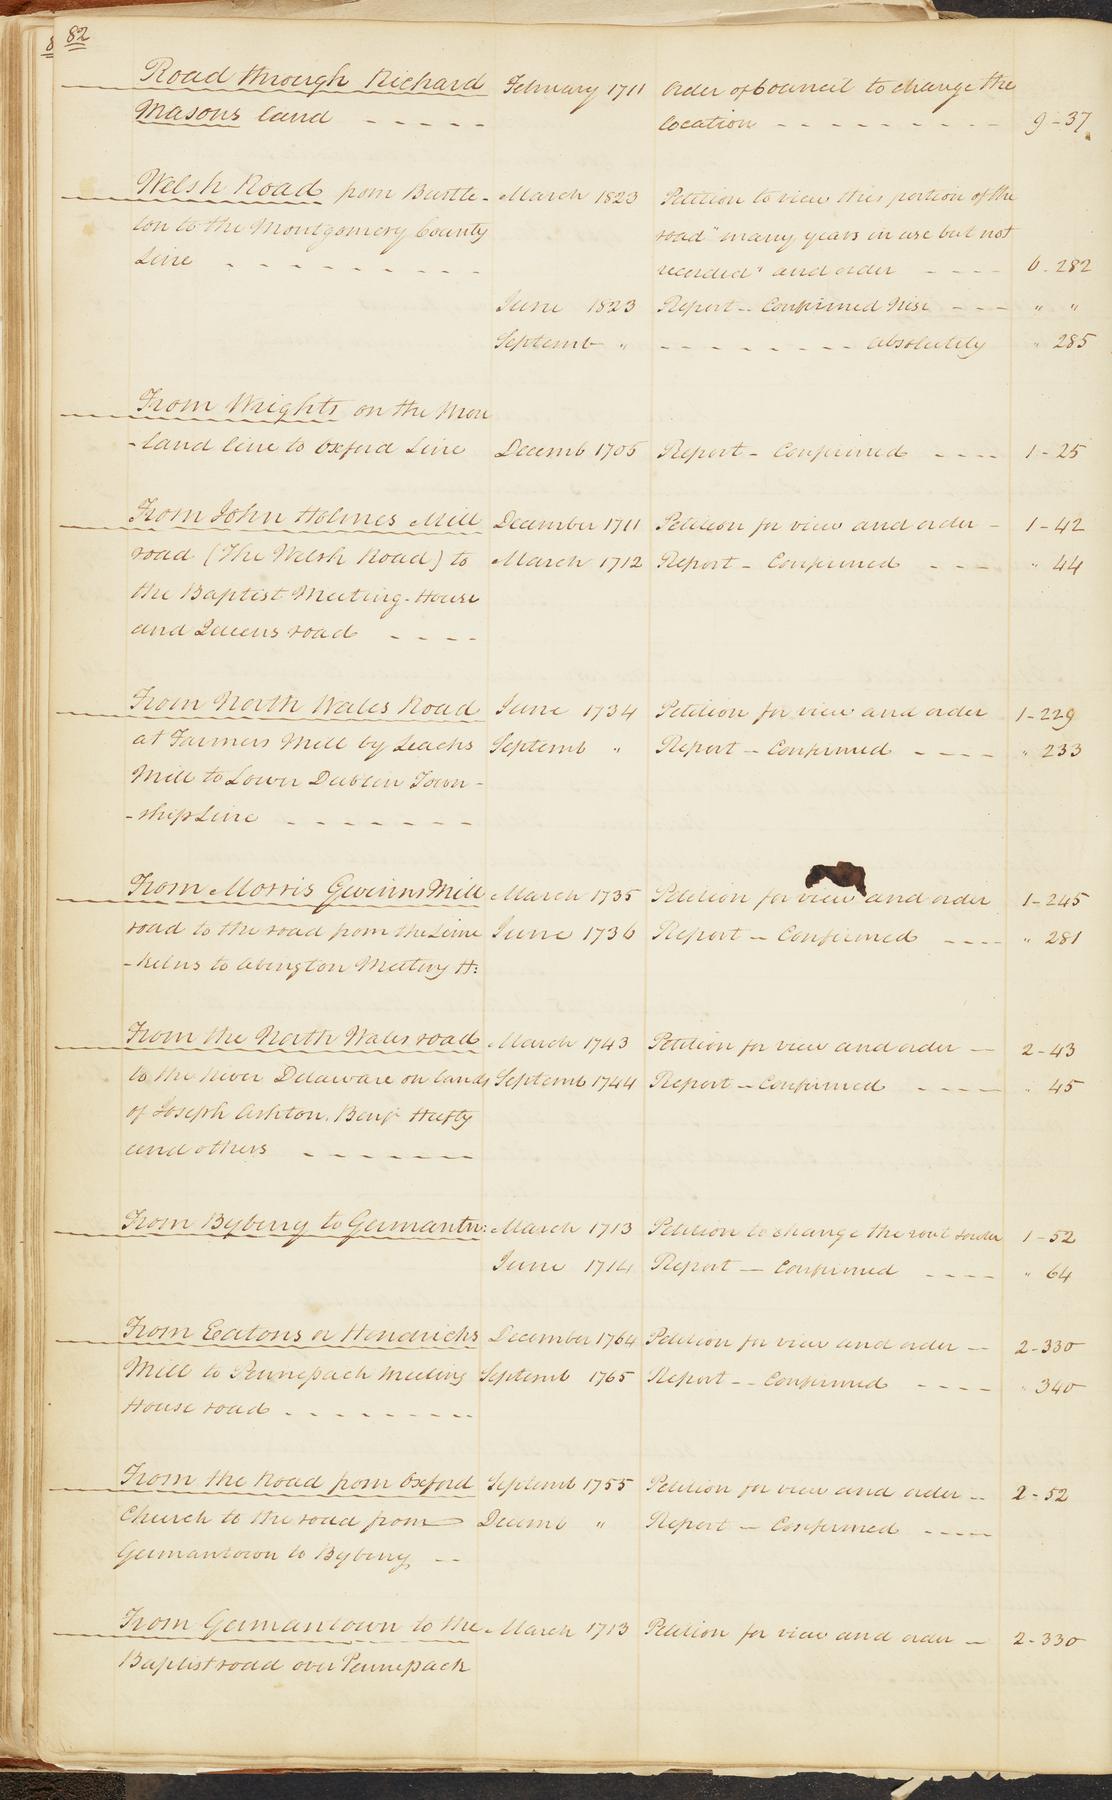 82
Road through Richard February 1711 Order of Council to change the
Masons land - - - - - location - - - - - - - - - 9-37
Welsh Road from Bustle- March 1823 Petition to view this portion of the
ton to the Montgomery County road "many years in use but not
Line - - - - - - - - recorded" and order - - - - 6-282
June 1823 Report -- Confirmed Nisi - - - " "
Septemb " - - - - - - - - absolutely " 285
From Wrights on the More
-land line to Oxford Line Decemb 1705 Report - Confirmed - - - - 1-25
From John Holmes Mill December 1711 Petition for view and order - 1-42
road (The Welsh Road) to March 1712 Report - Confirmed - - - " 44
the Baptist Meeting-House
and Queens road - - - -
From North Wales Road June 1734 Petition for view and order 1-229
at Farmers Mill by Leachs Septemb " Report - Confirmed - - - - " 233
Mill to Lower Dublin Town-
-ship Line - - - - - - -
From Morris Gwinns Mill March 1735 Petition for view and order 1-245
road to the road from the Lime June 1736 Report - Confirmed - - - - " 281
-kelns to Abington Meeting H:
From the North Wales road March 1743 Petition for view and order - 2-43
to the River Delaware on lands Septemb 1744 Report - Confirmed - - - - " 45
of Joseph Ashton, Benjn
and others - - - - - -
From Byberry to Germantn: March 1713 Petition to change the rout & order 1-52
June 1714 Report - Confirmed - - - - " 64
From Eatons or Hendricks December 1764 Petition for view and order -- 2-330
Mill to Pennepack Meeting Septemb 1765 Report -- Confirmed - - - - " 340
House road - - - - - - - -
From the Road from Oxford Septemb 1755 Petition for view and order -- 2-52
Church to the road from Decemb " Report - Confirmed - - - -
Germantown to Byberry --
From Germantown to the March 1713 Petition for view and order -- 2-330
Baptist road over Pennepack